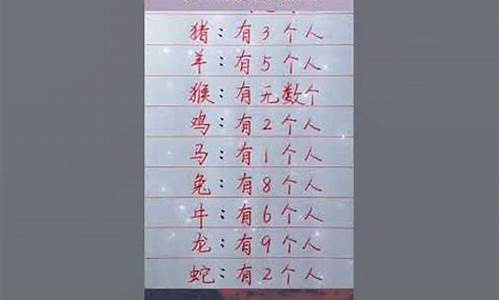 猪：有3个人
羊：有5个人
猴：有无数个
鸡：有2个人
马：有1个人
兔：有8个人
牛：有6个人
龙：有9个人
蛇：有2个人